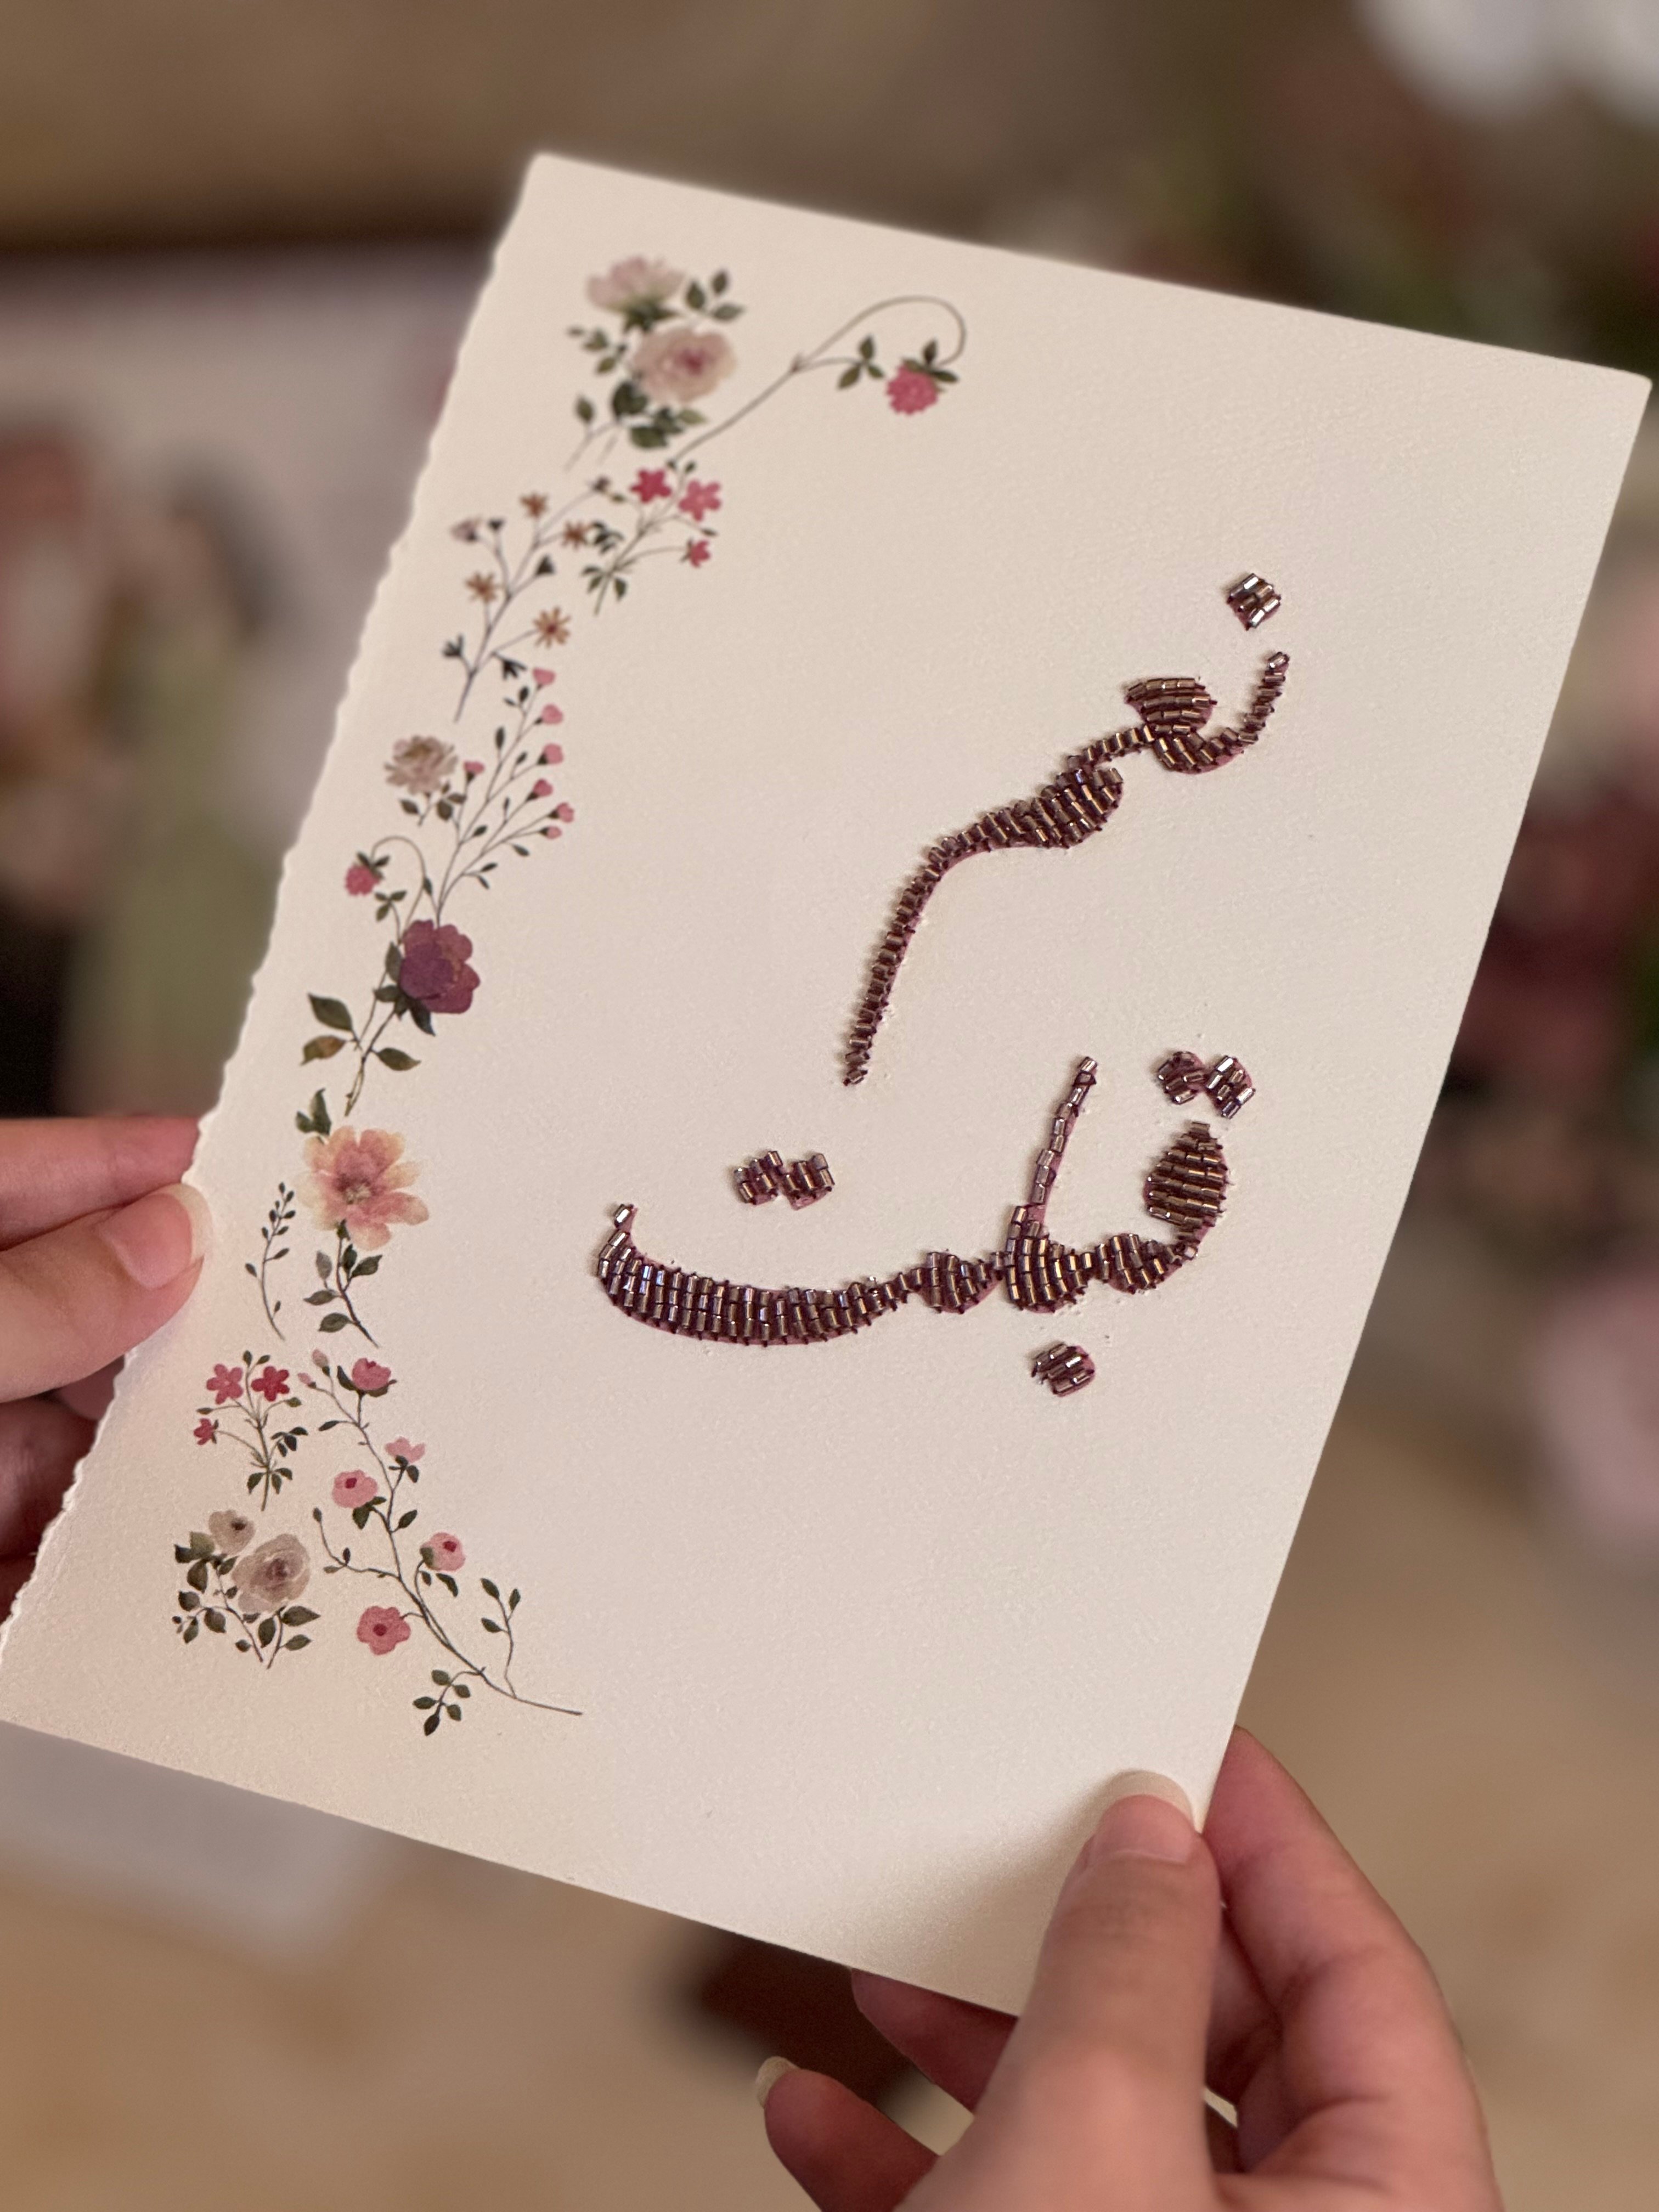 نعم
قبلت